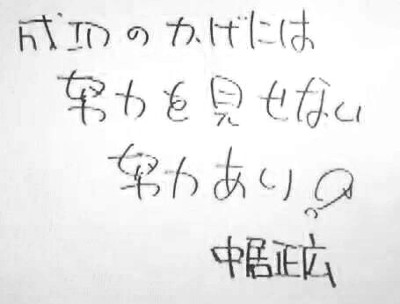 成功のかげには
努力を見せない
努力あり。
中居正広